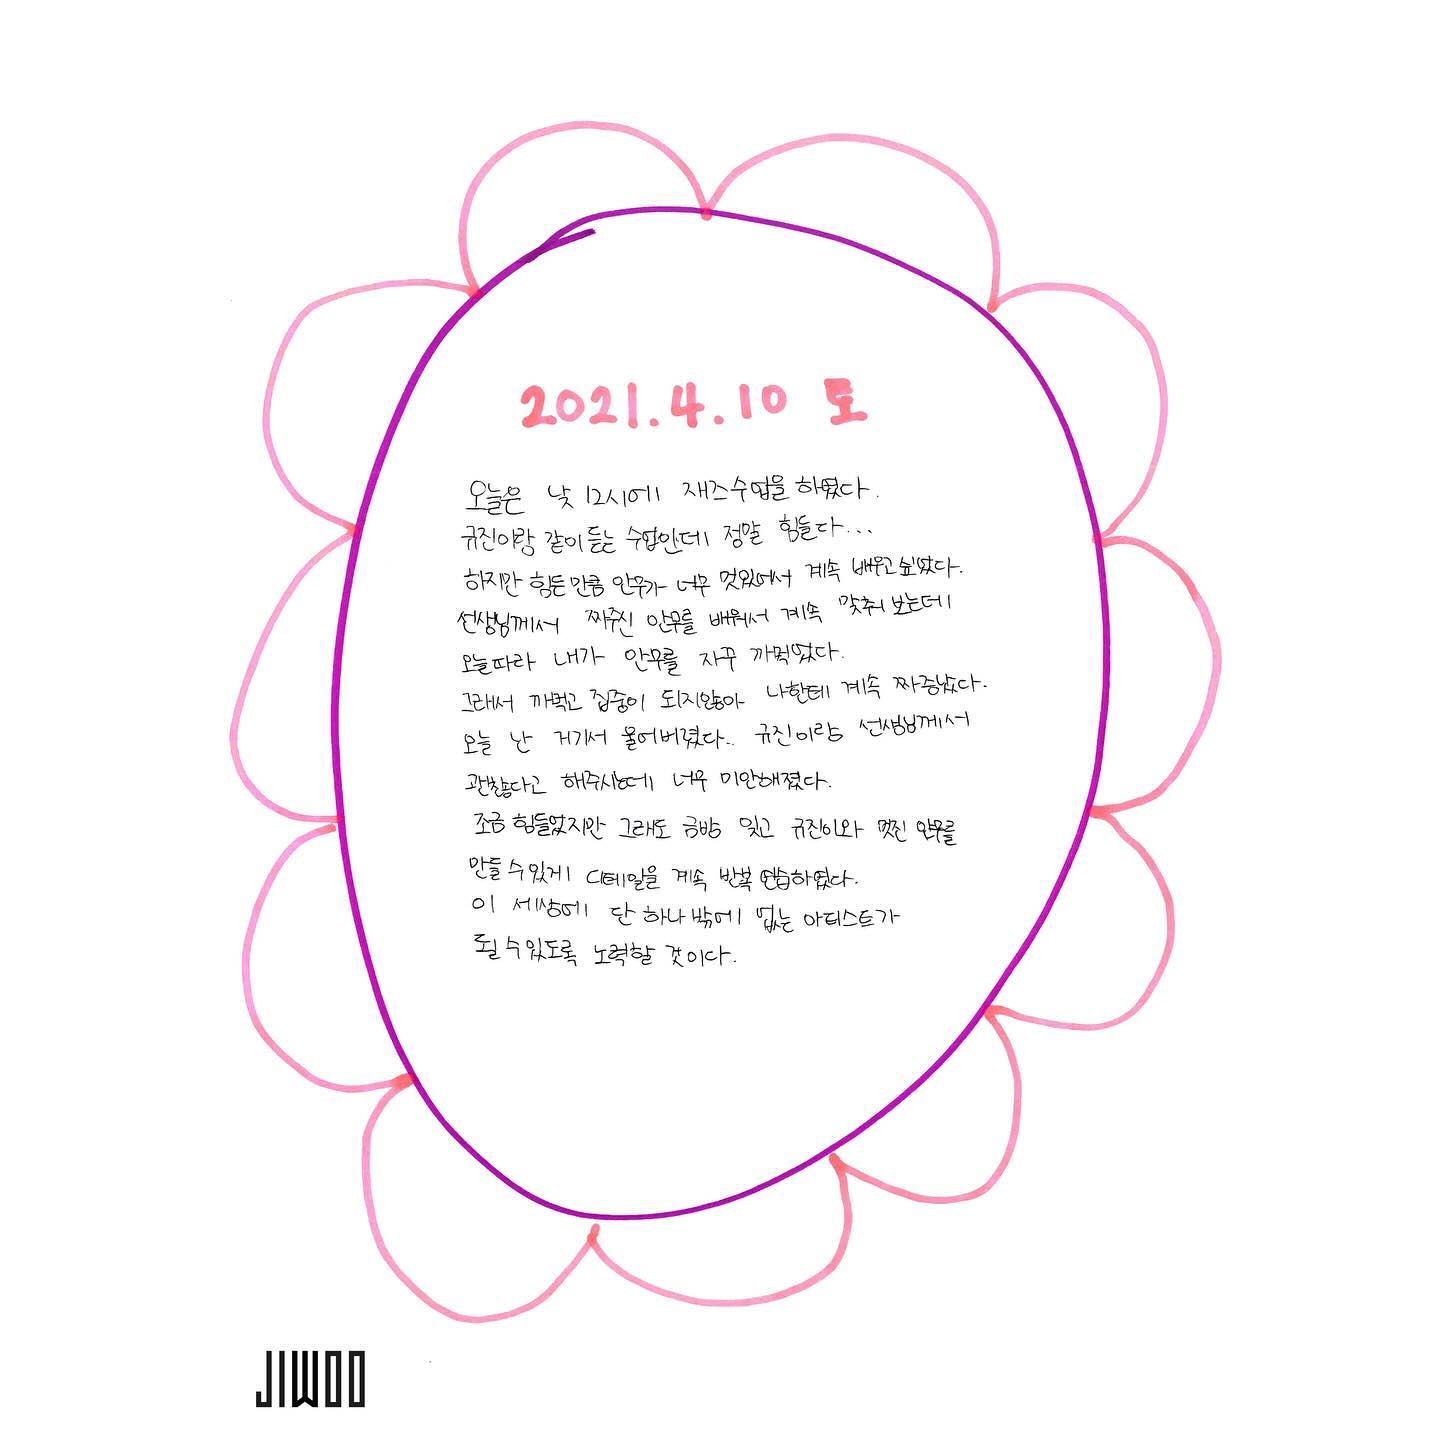 2021.4.10 토
오늘은 낮 12시에 재즈수업을 하였다.
규진이랑 같이 듣는 수업인데 정말 힘들다...
하지만 힘든만큼 안무가 너무 멋있어서 계속 배우고싶었다.
선생님께서 짜주신 안무를 배워서 계속 맞춰보는데
오늘따라 내가 안무를 자꾸 까먹었다.
그래서 까먹고 집중이 되지않아 나한테 계속 짜증났다.
오늘 난 거기서 울어버렸다.. 규진이랑 선생님께서
괜찮다고 해주시는데 너무 미안해졌다.
조금 힘들었지만 그래도 금방 잊고 규진이와 멋진 안무를
만들 수 있게 디테일을 계속 반복 연습하였다.
이 세상에 단 하나밖에 없는 아티스트가
될 수 있도록 노력할 것이다.
JIWOO